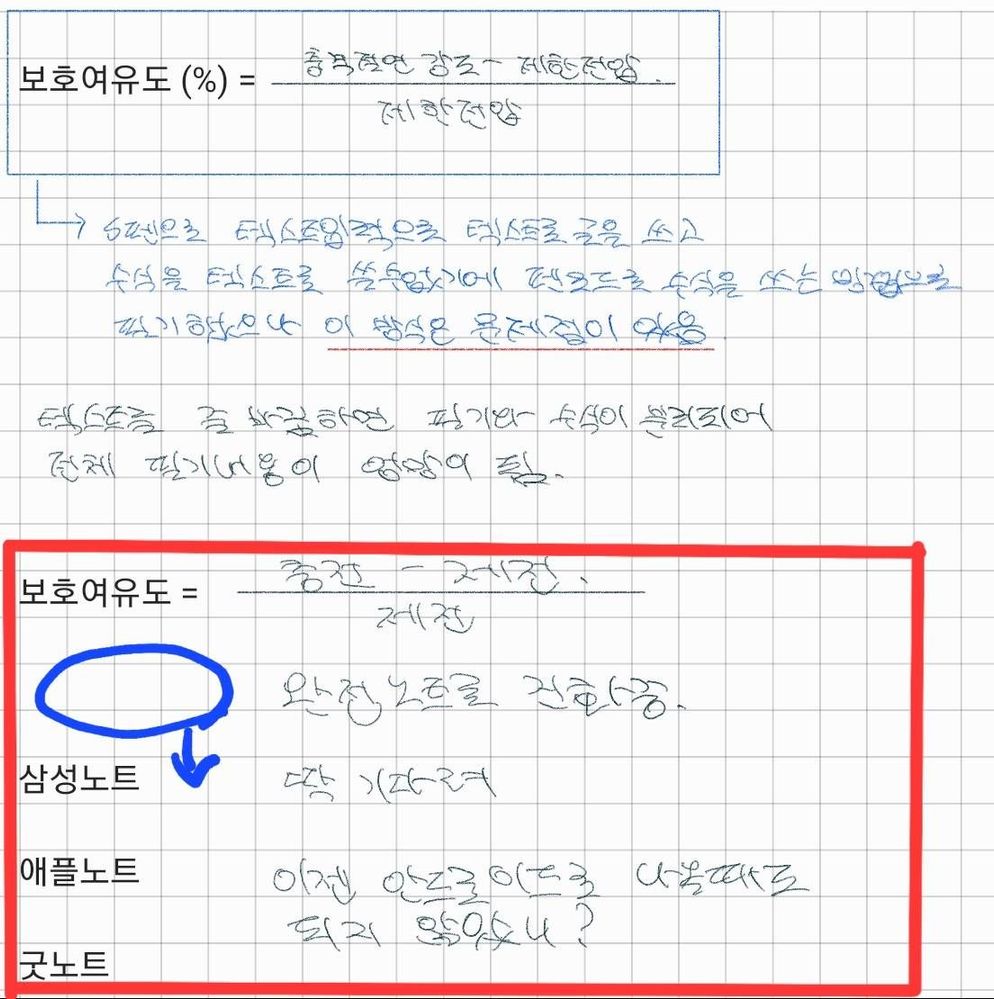 보호여유도 (%) =
충격절연 강도 - 제한전압
제한전압
S펜으로 텍스트입력으로 텍스트로 글을 쓰고
수식을 텍스트로 쓸수없기에 펜모드로 수식을 쓰는 방법으로
필기하였으나 이 방식은 문제점이 있음.
텍스트를 줄 바꿈하면 필기와 수식이 분리되어
전체 필기내용이 엉망이 됨.
보호여유도 =
충전 - 제전.
제전
완전노트로 진화중.
삼성노트 딱 기다려
애플노트 이젠 안드로이드로 나올때도
되지 않았소니?
굿노트